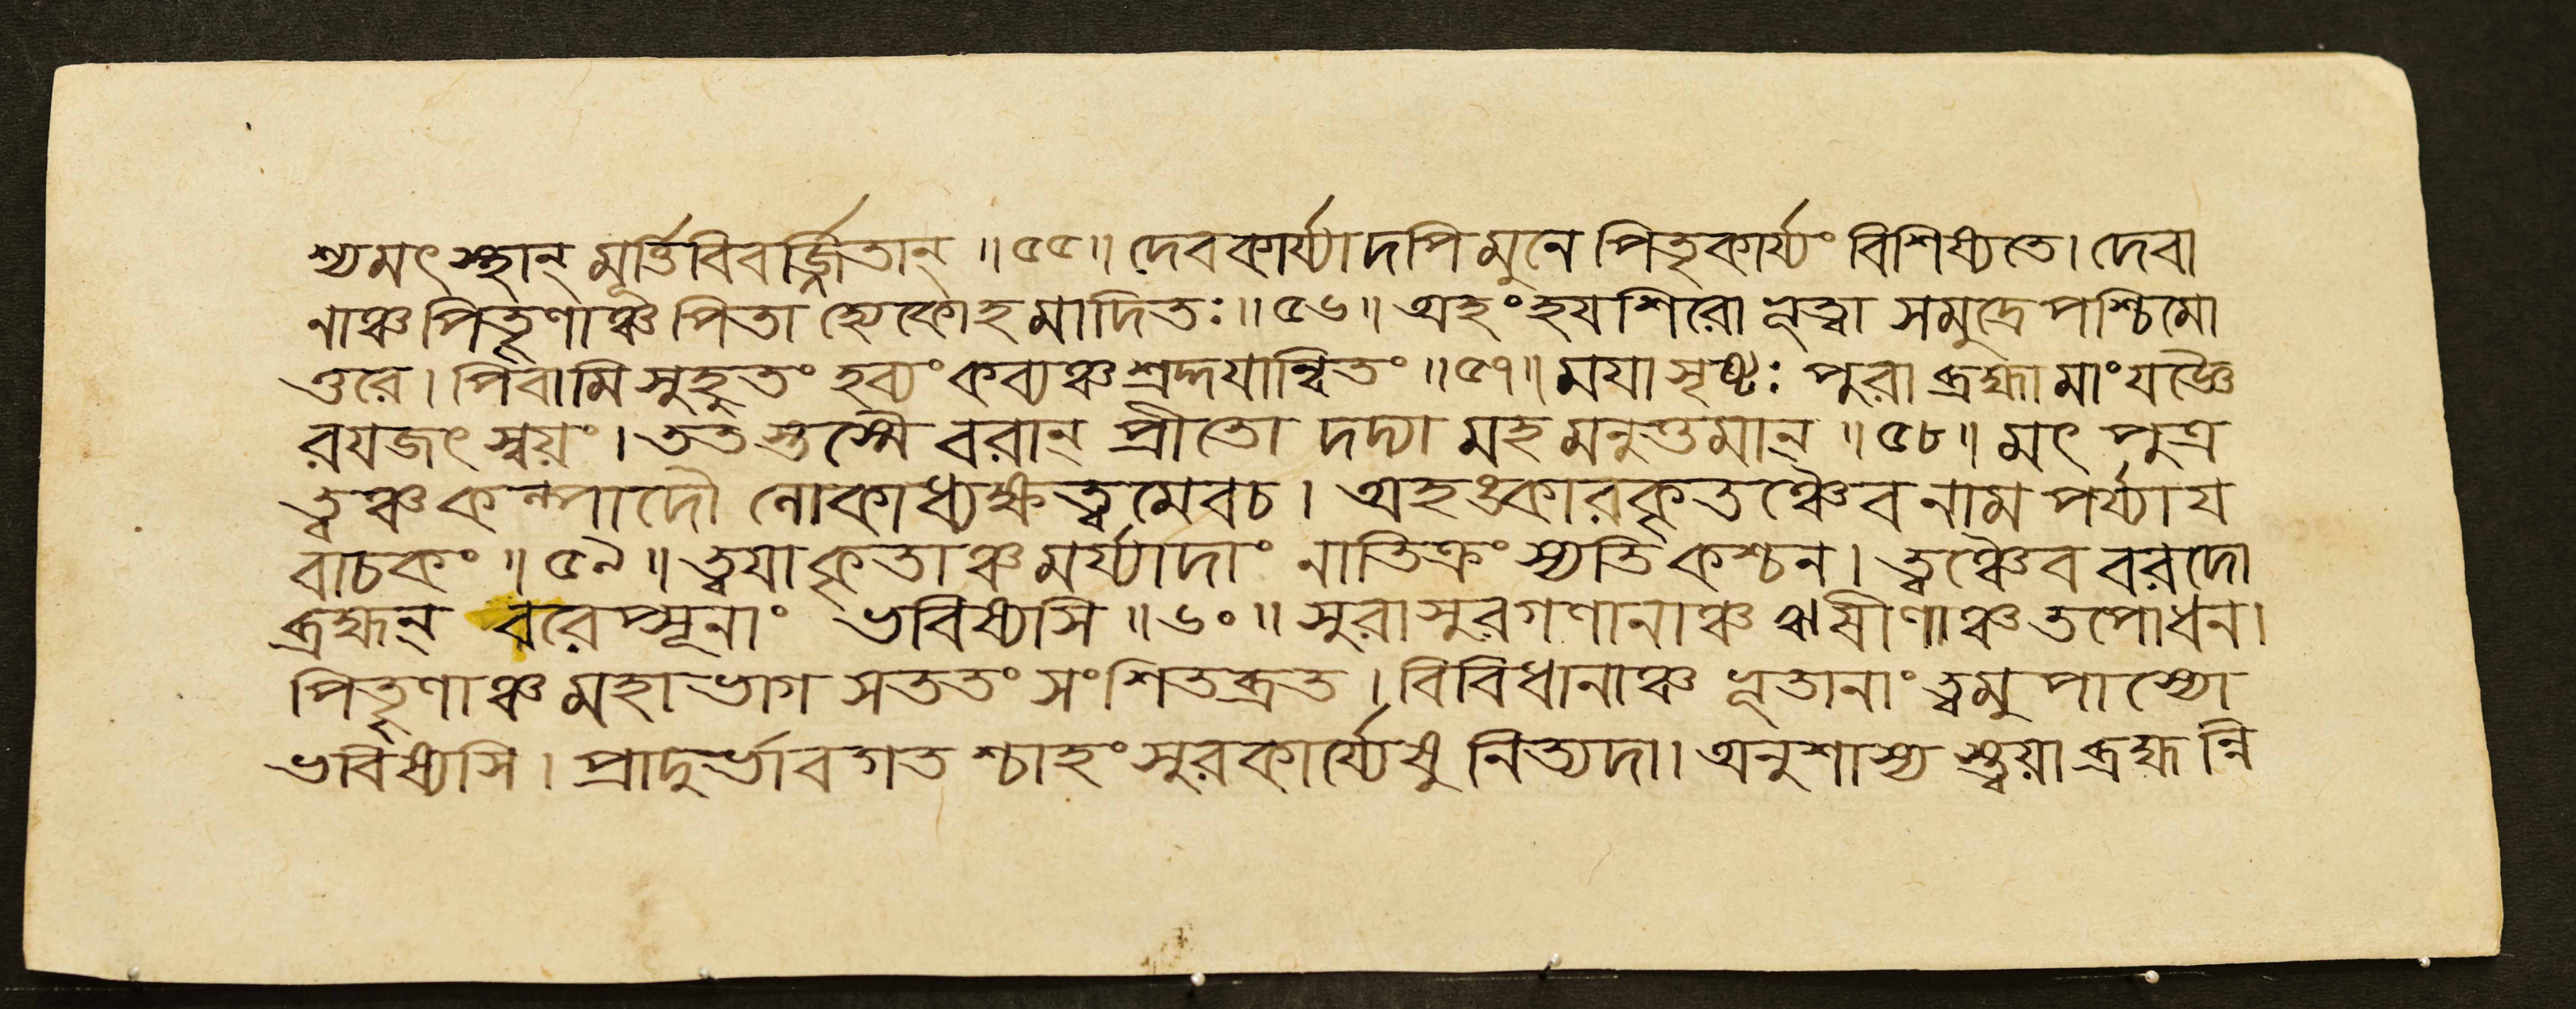 শ্যমৎস্থান্ মূর্ত্তিবিবর্জ্জিতান্ ॥৫৫॥ দেবকার্য্যাদপি মুনে পিতৃকার্য্যং বিশিষ্যতে। দেবা
নাঞ্চ পিতৄণাঞ্চ পিতা হ্যেকোহমাদিতঃ॥৫৬॥ অহং হযশিরো ভূত্বা সমুদ্রে পশ্চিমো
ত্তরে। পিবামি সুহুতং হব্যং কব্যঞ্চ শ্রদ্দযান্বিতং ॥৫৭॥ মযা সৃষ্টঃ পুরা ব্রহ্মা মাং যজ্ঞৈ
রযজৎ স্বয়ং। ততস্তস্মৈ বরান্ প্রীতো দদ্যামহমনুত্তমান্ ॥৫৮॥ মৎ পুত্র
ত্বঞ্চ কল্পাদৌ লোকাধ্যক্ষত্বমেবচ। অহঙ্কারকৃতঞ্চৈব নাম পর্য্যায
বাচকং ॥৫৯॥ ত্বযা কৃতাঞ্চ মর্য্যাদাং নাতিক্রংস্যতি কশ্চন। ত্বঞ্চৈব বরদো
ব্রহ্মন্ বরেপ্সূনাং ভবিষ্যসি ॥৬০॥ সুরাসুরগণানাঞ্চ ঋষীণাঞ্চ তপোধন।
পিতৄণাঞ্চ মহাভাগ সততং সংশিতব্রত। বিবিধানাঞ্চ ভূতানাং ত্বমুপাস্যো
ভবিষ্যসি। প্রাদুর্ভাবগতশ্চাহং সুরকার্য্যেষু নিত্যদা। অনুশাস্যস্ত্বয়া ব্রহ্মন্নি